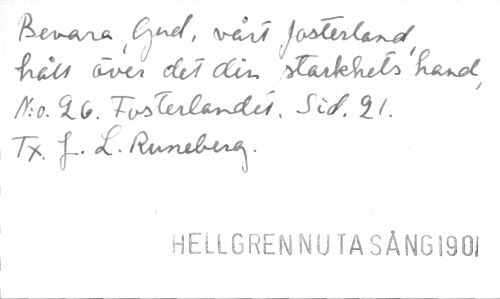 Bevara, Gud, vårt fosterland,
håll över det din starkhets hand,
N:o. 26. Fosterlandet. Sid. 21.
Tx. J. L. Runeberg.
HELLGREN NUTA SÅNG 1901